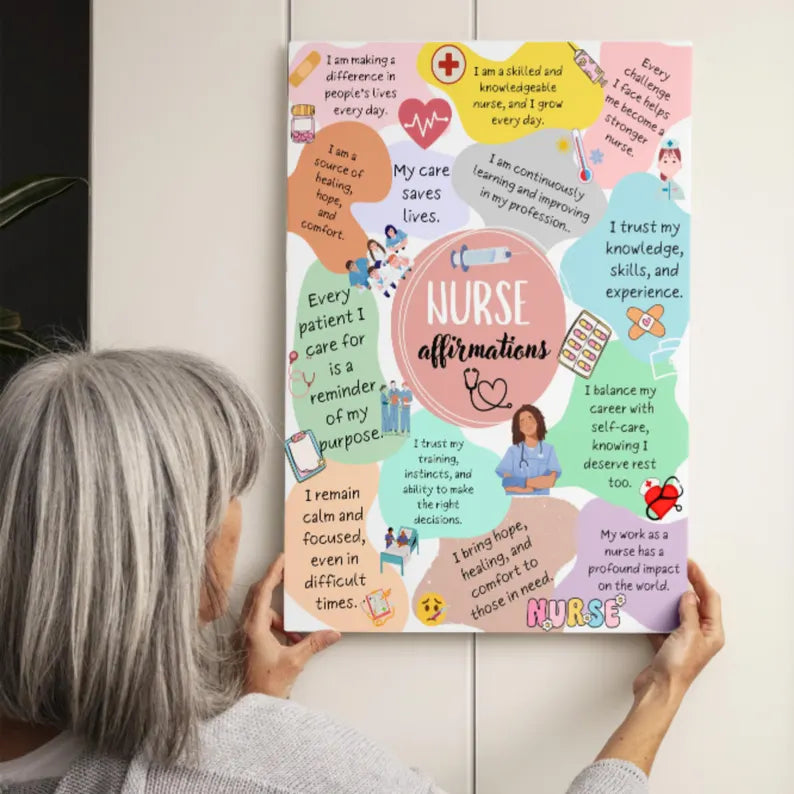 I am making a
difference in
people's lives
every day.
I am a skilled and
knowledgeable
nurse, and I grow
every day.
Every
challenge
I face helps
me become a
stronger
nurse.
I am a
source of
healing,
hope,
and
comfort.
My care
saves
lives.
I am continuously
learning and improving
in my profession..
I trust my
knowledge,
skills, and
experience.
NURSE
affirmations
Every
patient I
care for
is a
reminder
of my
purpose.
I balance my
career with
self-care,
knowing I
deserve rest
too.
I trust my
training,
instincts, and
ability to make
the right
decisions.
I remain
calm and
focused,
even in
difficult
times.
I bring hope,
healing, and
comfort to
those in need.
My work as a
nurse has a
profound impact
on the world.
NURSE